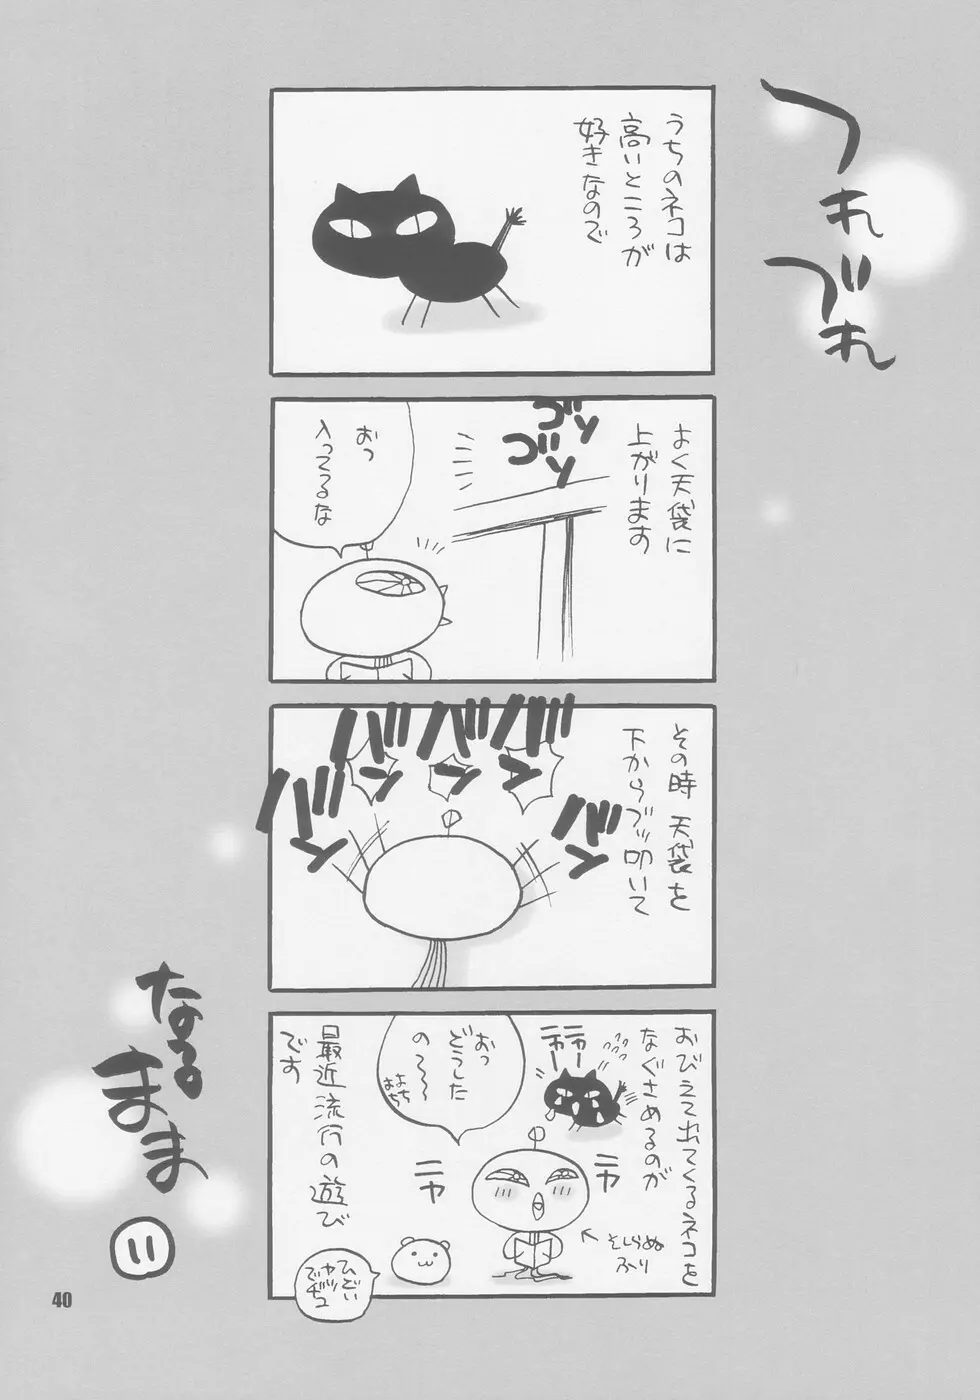 つれ
づれ
うちのネコは
高いところが
好きなので
よく天袋に
上がります
ゴソ
ゴソ
おっ
入ってるな
その時 天袋を
下からブッ叩いて
バン
バン
バン
バン
バン
おびえてれてくるネコを
なぐさめるのが
ニャー
ニャー
おっ
どうした
の~~
よち
よち
最近流行の遊び
です
ニヤ
ニヤ
そしらぬ
ふり
ひどい
ヤツ
でチュ
なる
まま
11
40